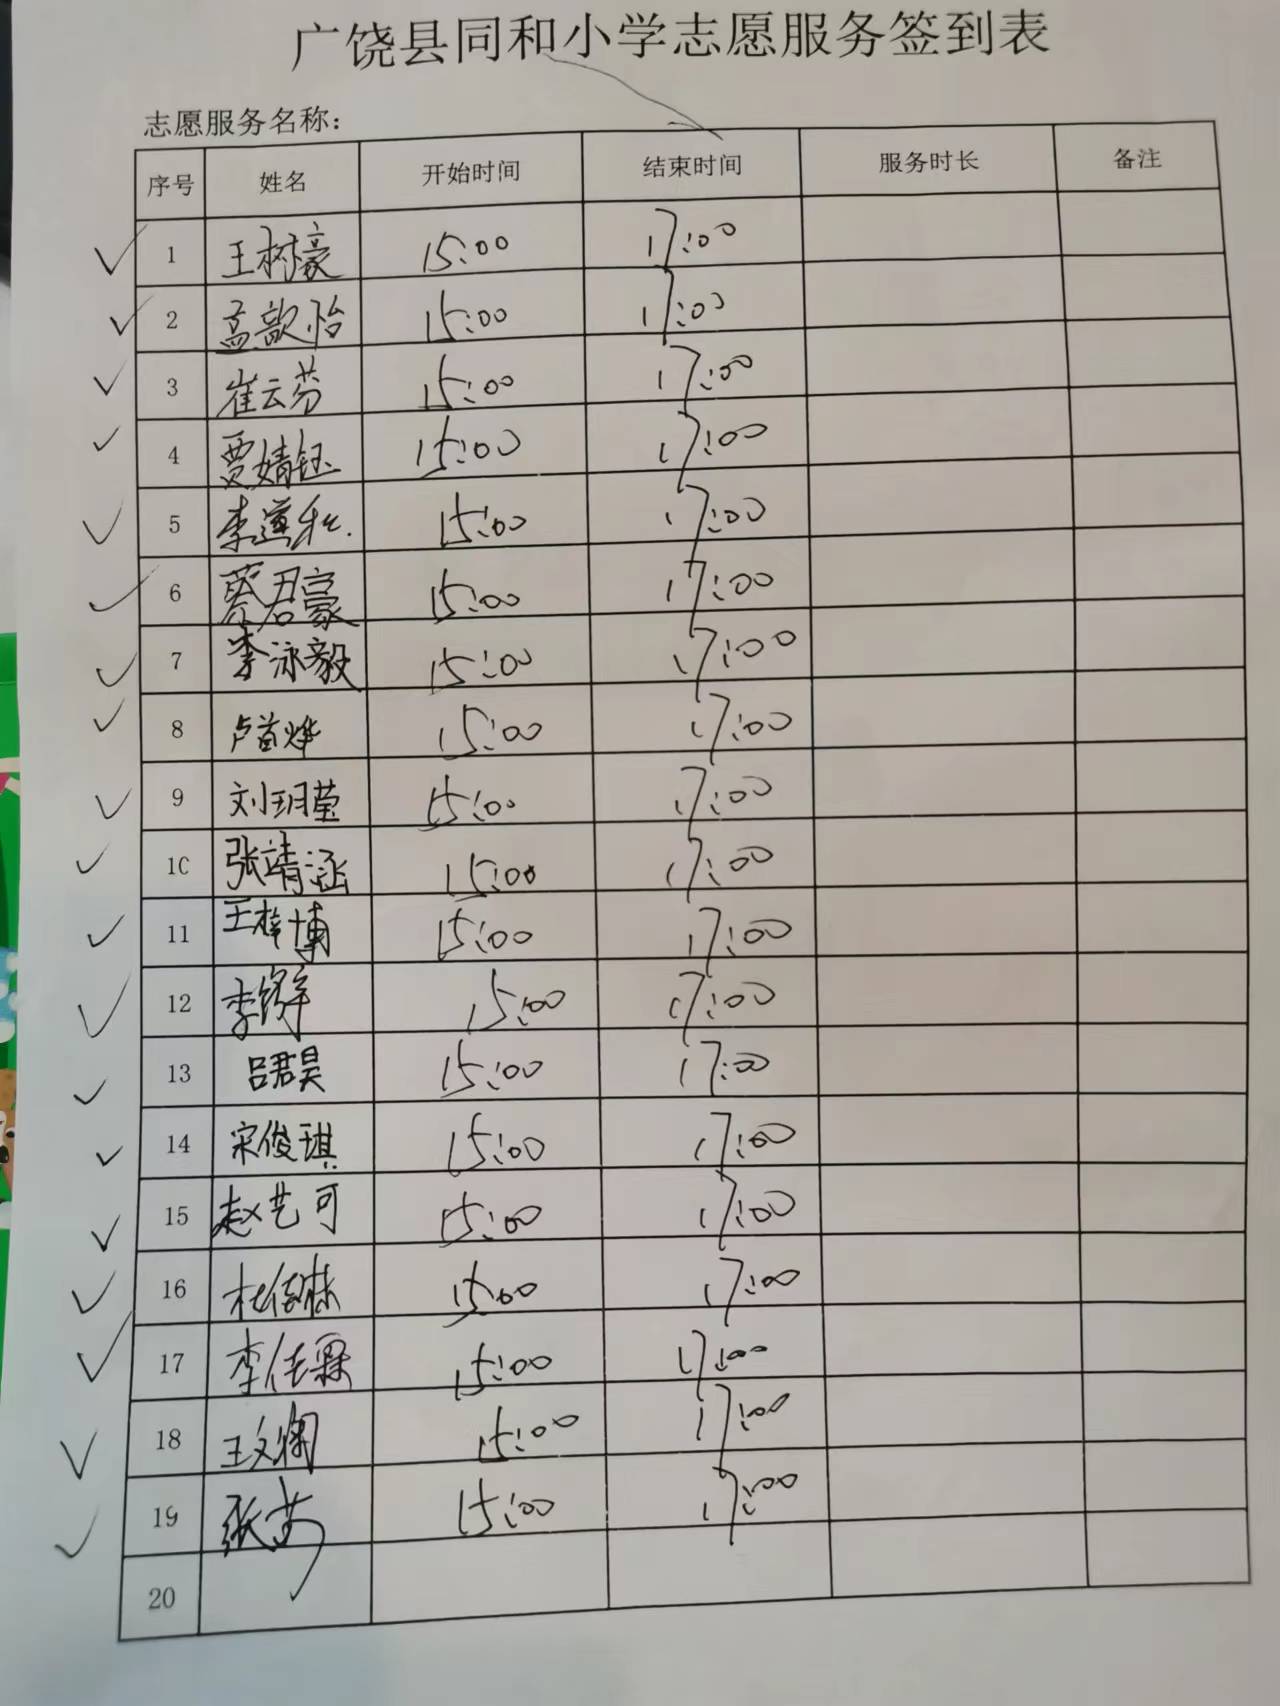 广饶县同和小学志愿服务签到表
志愿服务名称：
序号 姓名 开始时间 结束时间 服务时长 备注
1 王树豪 15:00 17:00
2 孟歆怡 15:00 17:00
3 崔云芬 15:00 17:00
4 贾婧钰 15:00 17:00
5 李 15:00 17:00
6 蔡君豪 15:00 17:00
7 李泳毅 15:00 17:00
8 卢首烨 15:00 17:00
9 刘玥莹 15:00 17:00
10 张靖涵 15:00 17:00
11 王梓博 15:00 17:00
12 李 15:00 17:00
13 吕君昊 15:00 17:00
14 宋俊琪 15:00 17:00
15 赵艺可 15:00 17:00
16 杜 15:00 17:00
17 李佳霖 15:00 17:00
18 王文 15:00 17:00
19 张 15:00 17:00
20